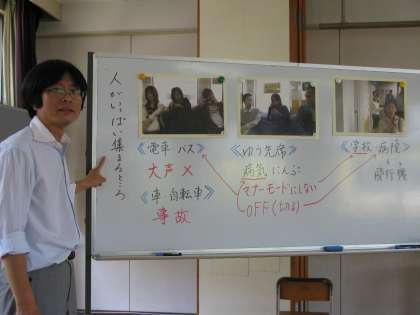 人がいっぱい集まるところ
《電車 バス》
大声 ×
《車 自転車》
事故
《ゆう先席》
病気 にんぷ
マナーモードにしない
OFF(切る)
《学校 病院》
飛行機